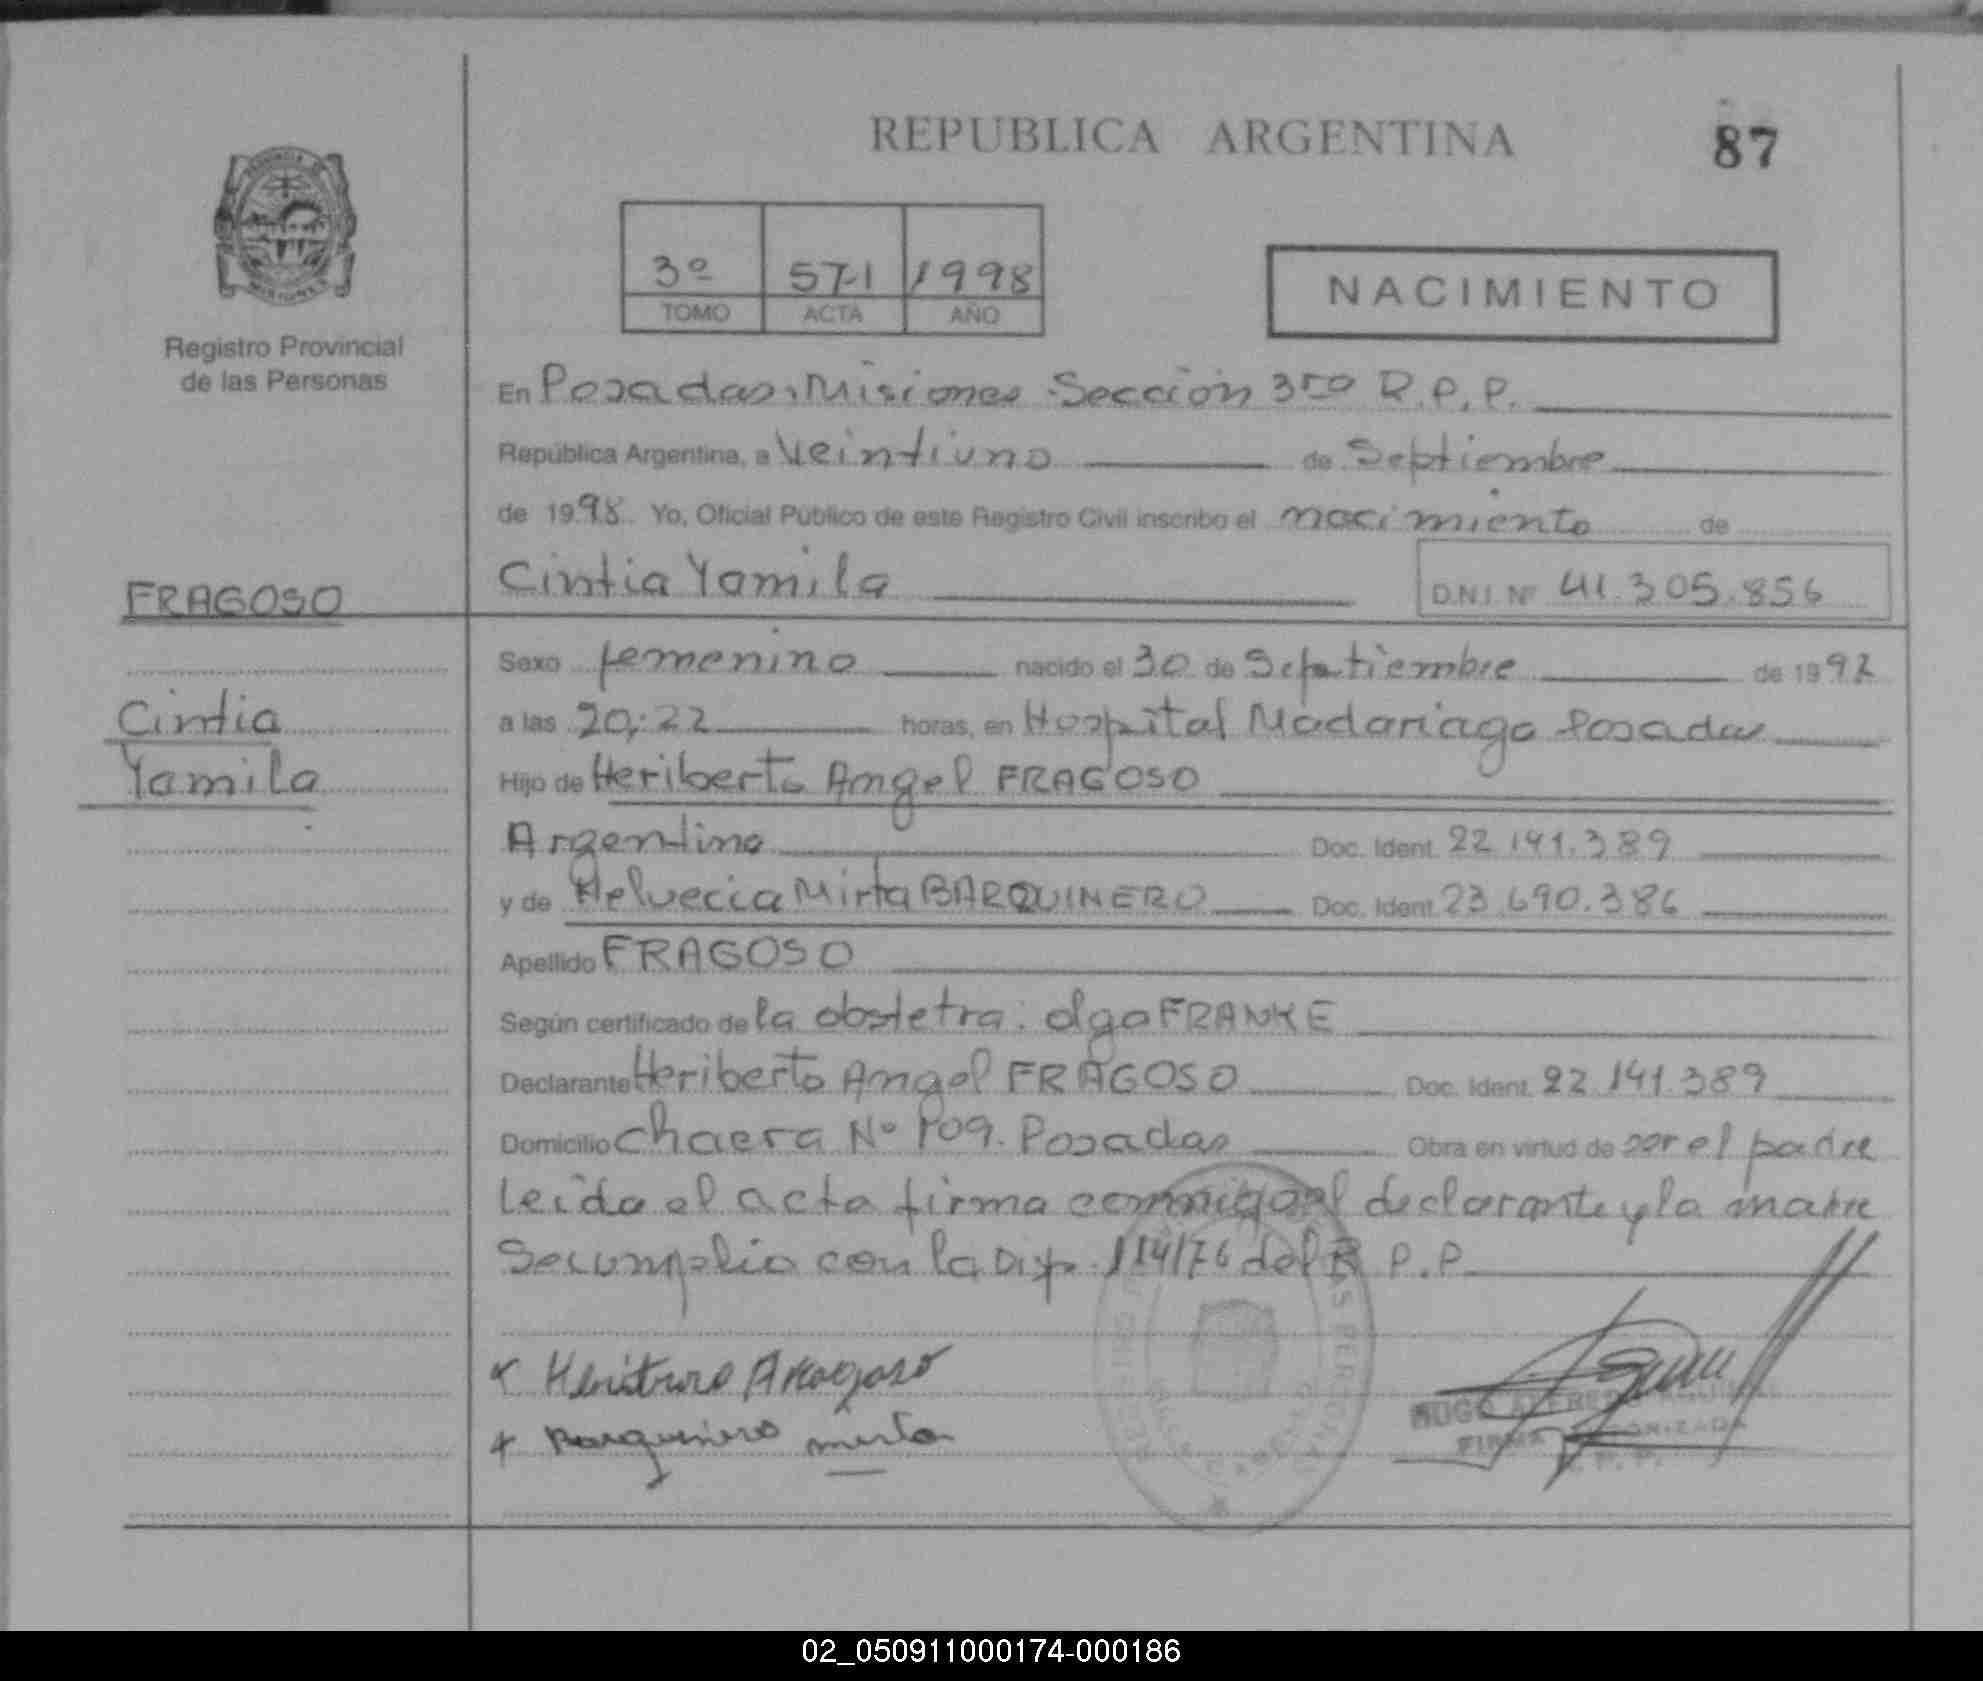 REPUBLICA ARGENTINA
87
3º 571 1998
TOMO ACTA AÑO
NACIMIENTO
Registro Provincial
de las Personas
En Posadas, Misiones Sección 3ra R.P.P.
República Argentina, a Veintiuno de Septiembre
de 1998 Yo, Oficial Público de este Registro Civil inscribo el nacimiento de
FRAGOSO
Cintia Yamila
D.N.I. Nº 41.305.856
Sexo femenino nacido el 30 de Septiembre de 199
Cintia
a las 20:22 horas, en Hospital Madariaga Posadas
Yamila
Hijo de Heriberto Angel FRAGOSO
Argentina Doc. Ident. 22.141.389
y de Helvecia Mirta BARQUINERO Doc. Ident. 23.690.386
Apellido FRAGOSO
Según certificado de la obstetra: Olga FRANKE
Declarante Heriberto Angel FRAGOSO Doc. Ident. 22.141.389
Domicilio Chacra Nº 109. Posadas Obra en virtud de ser el padre
Leída el acta firma conmigo el declarante y la madre
Se cumplio con la Disp. 114/76 del R.P.P.
Barquinero mirta
HUGO ALFREDO
FIRMA AUTORIZADA
R. P. P.
02_050911000174-000186